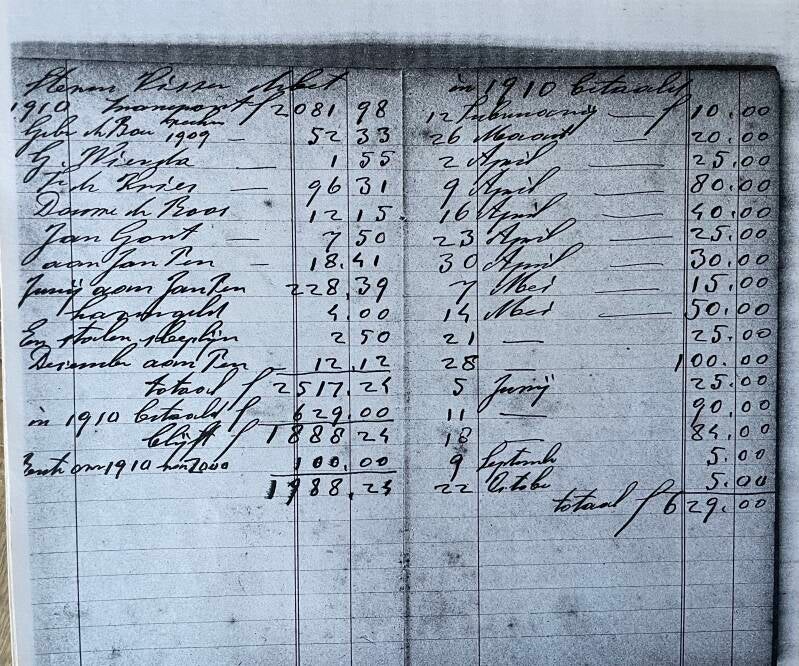 Debet
1910 transport f 2081.98
Gebr de Boer 1909 — 52 33
G. Wierda — 1 55
— 96 31
Douwe de Roos 12 15
Jan Gont — 7 50
aan Jan Pen — 18.41
Junij aan Jan Pen 228.39
havengeld 4.00
En stalen sleeplijn 2 50
Desember aan Pen 12.12
totaal f 2517.24
in 1910 betaald f 629.00
blijft f 1888 24
over 1910 van 2000 100.00
1988.24
in 1910 betaald
12 Februarij — f 10.00
26 Maart — 20.00
2 April — 25.00
9 April — 80.00
16 April — 40.00
23 April — 25.00
30 April — 30.00
7 Mei — 15.00
14 Mei — 50.00
21 — 25.00
28 — 100.00
5 Junij 25.00
11 — 90.00
18 — 84.00
9 September 5.00
22 October 5.00
totaal f 629.00